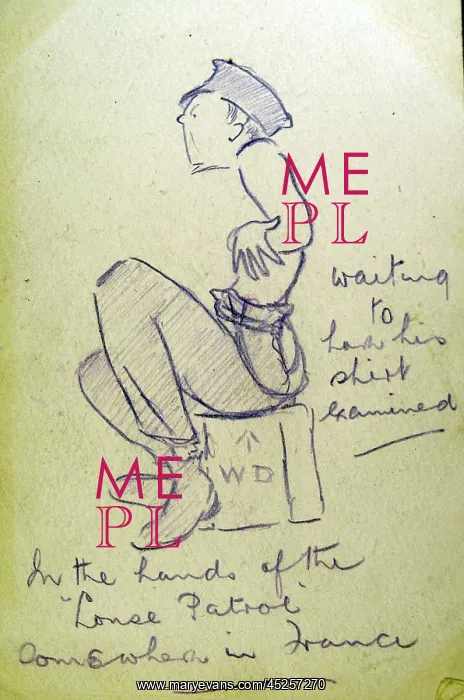 ME
PL
waiting
to
have his
shirt
examined
↑
WD
ME
PL
In the hands of the
"Louse Patrol"
Somewhere in France
www.maryevans.com/45257270